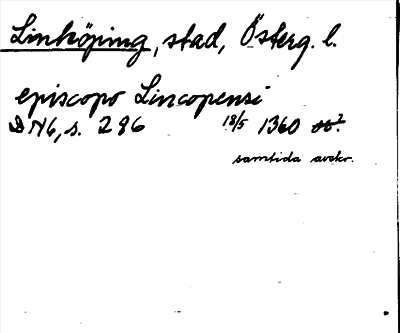 Linköping, stad, Österg. l.
episcopo Lincopensi
DN6, s. 286 18/5 1360
samtida avskr.